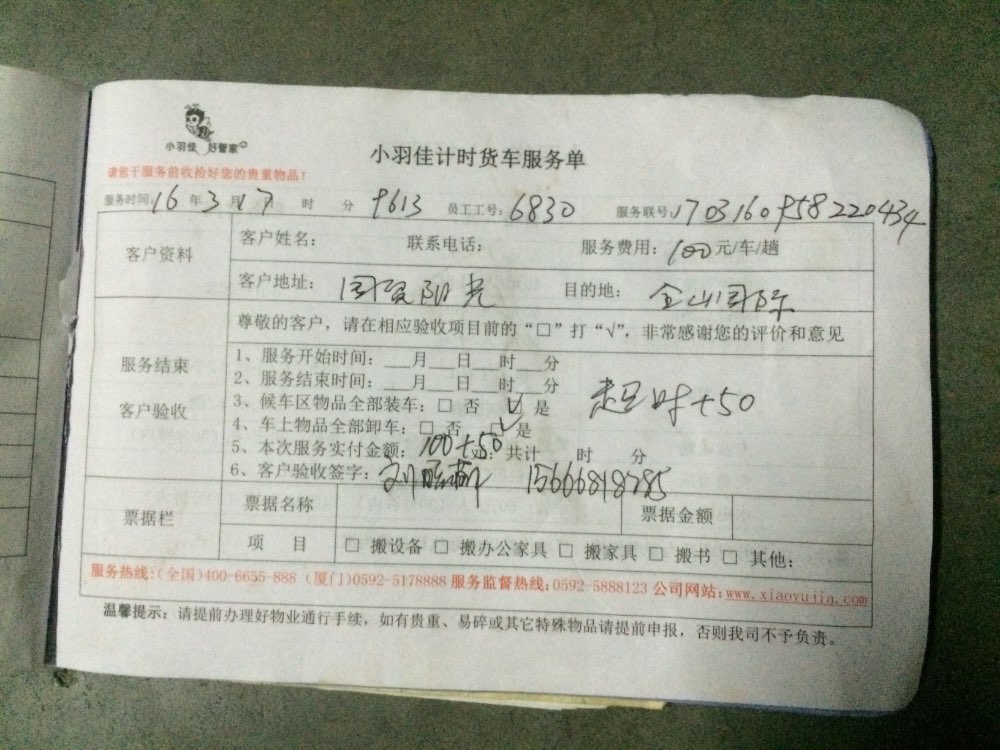 小羽佳 好管家
小羽佳计时货车服务单
请您于服务前收拾好您的贵重物品!
服务时间: 16 年 3 月 17 时 分 9613 员工工号: 6830 服务联号: 1703160958220434
客户资料
客户姓名: 联系电话: 服务费用: 100 元/车/趟
客户地址: 国贸阳光 目的地: 金山国际
尊敬的客户,请在相应验收项目前的“□”打“√”,非常感谢您的评价和意见
服务结束
客户验收
1、服务开始时间: __月__日__时__分
2、服务结束时间: __月__日__时__分
3、候车区物品全部装车: □ 否 ☑ 是
超时+50
4、车上物品全部卸车: □ 否 ☑ 是
5、本次服务实付金额: 100+50 共计 时 分
6、客户验收签字: 15666818285
票据栏
票据名称 票据金额
项 目 □ 搬设备 □ 搬办公家具 □ 搬家具 □ 搬书 □ 其他:
服务热线:(全国)400-6655-888 (厦门)0592-5178888 服务监督热线:0592-5888123 公司网站:www.xiaoyujia.com
温馨提示: 请提前办理好物业通行手续,如有贵重、易碎或其它特殊物品请提前申报,否则我司不予负责。